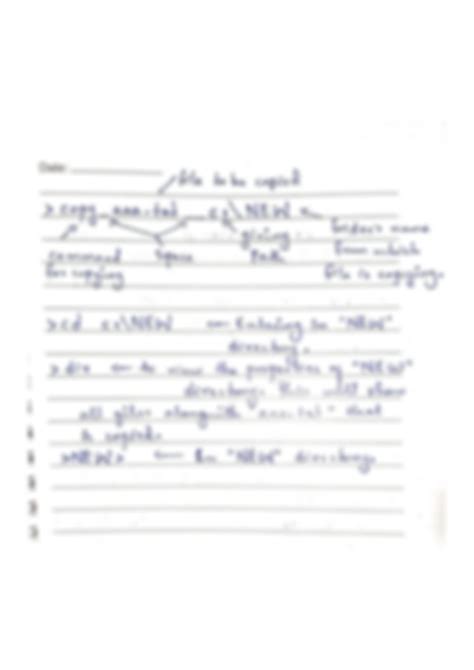 Date:
file to be copied
> copy aaa.txt c:\NEW
giving folder's name
command space path from which
for copying file is copying.
> cd c:\NEW ← Entering in "NEW"
directory.
> dir ← to view the properties of "NEW"
directory. this will show
all files along with "aaa.txt" that
is copied.
>NEW> ← In "NEW" directory.